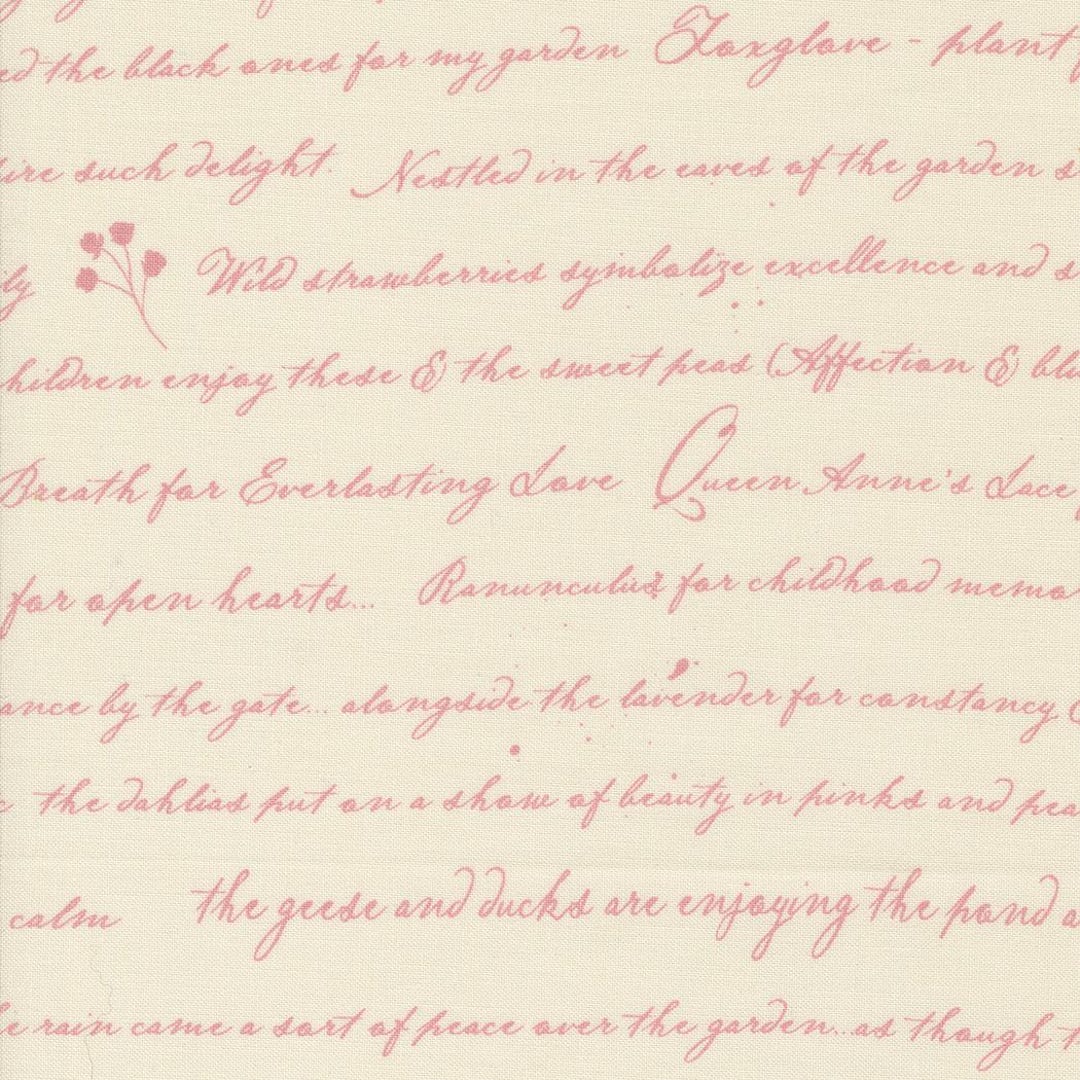 ed the black ones for my garden Foxglove - plant
ire such delight. Nestled in the eaves of the garden s
ily Wild strawberries symbolize excellence and s
hildren enjoy these & the sweet peas (Affection & bli
Breath for Everlasting Love Queen Anne's Lace
for open hearts... Ranunculus for childhood memo
ance by the gate... alongside the lavender for constancy
the dahlias put on a show of beauty in pinks and pea
calm the geese and ducks are enjoying the pond a
e rain came a sort of peace over the garden...as though t